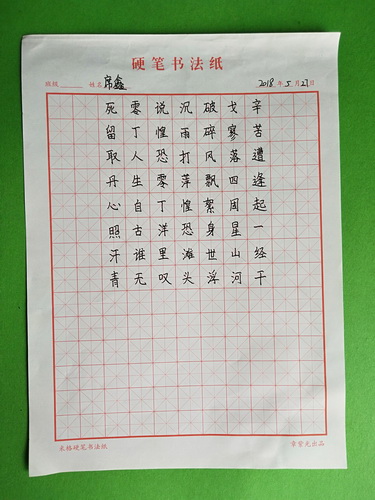 硬笔书法纸
班级 姓名 席鑫 2018年5月27日
辛苦遭逢起一经干
戈寥落四周星山河
破碎风飘絮身世浮
沉雨打萍惶恐滩头
说惶恐零丁洋里叹
零丁人生自古谁无
死留取丹心照汗青
米格硬笔书法纸 章紫光出品